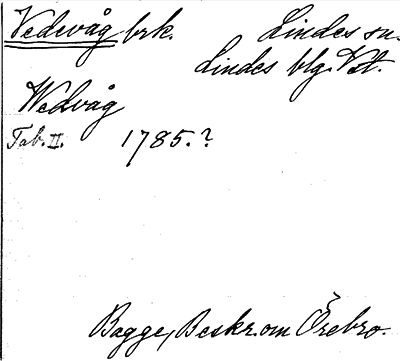 Vedevåg brk. Lindes sn.
Lindes blg. Vst.
Wedvåg
Tab. II. 1785.?
Bagge, Beskr. om Örebro.